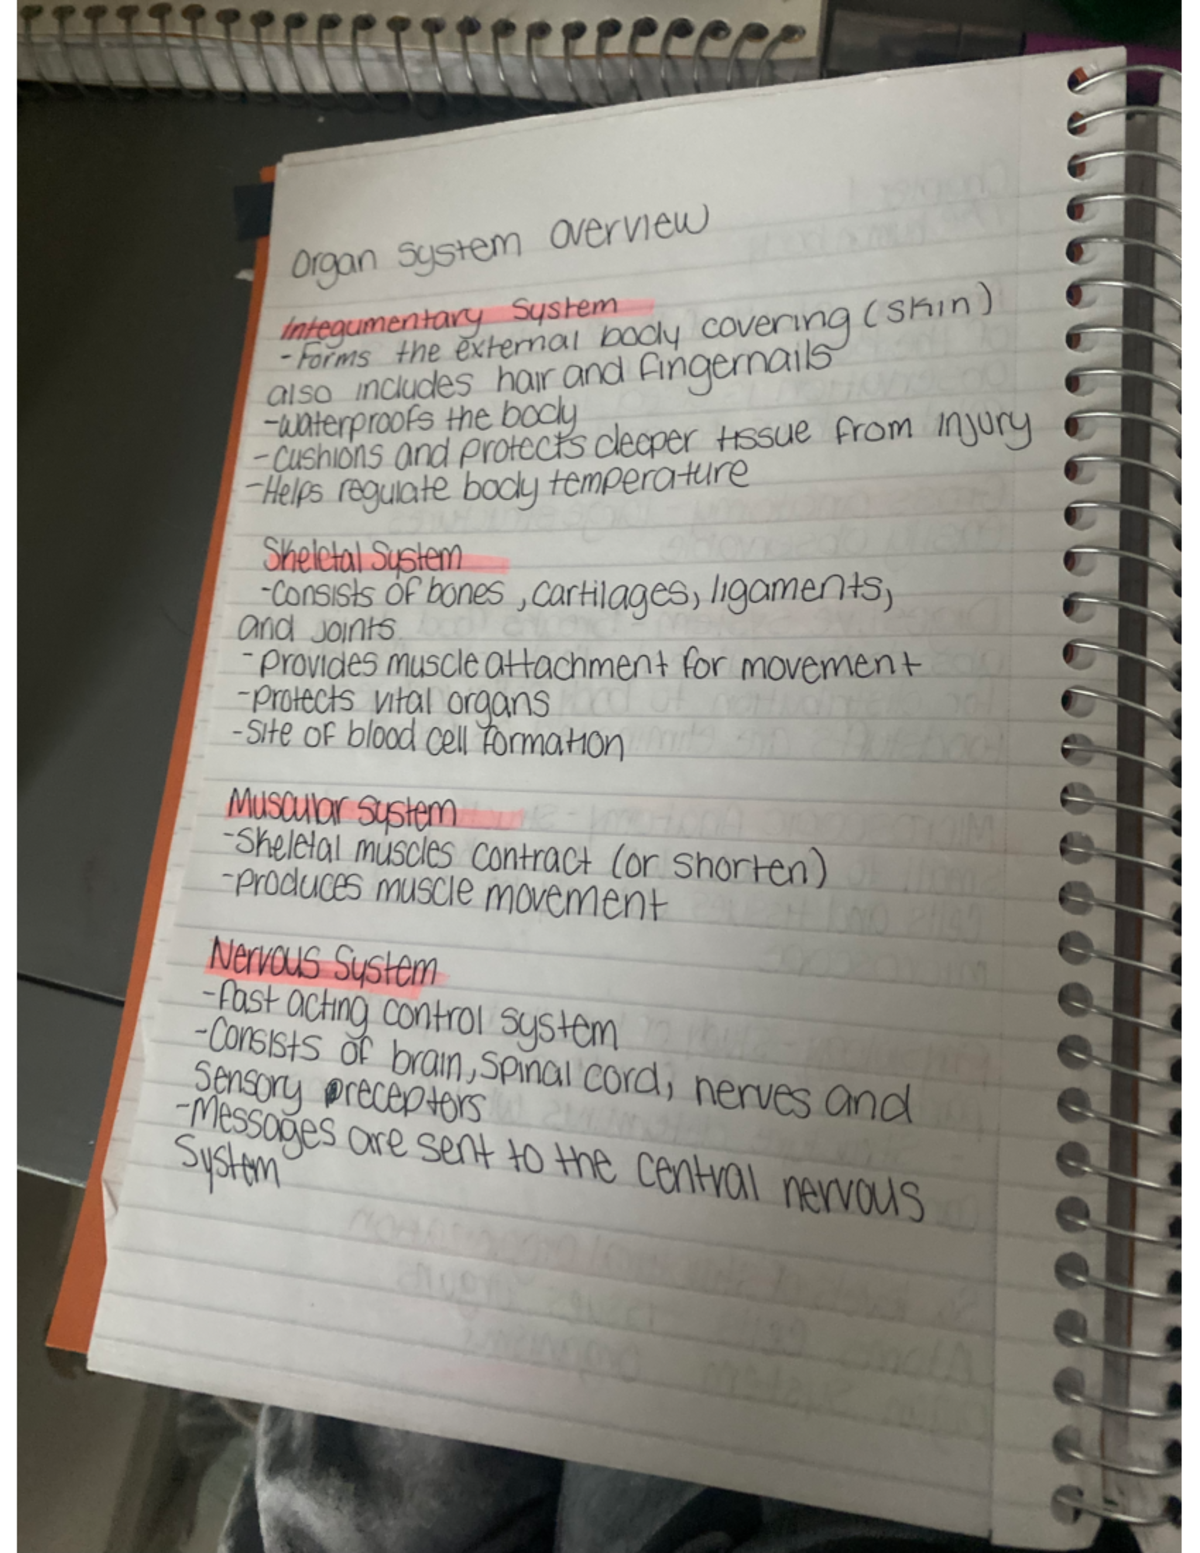 Organ System overview
Integumentary System
-Forms the external body covering (skin)
also includes hair and fingernails
-waterproofs the body
-cushions and protects deeper tissue from injury
-Helps regulate body temperature
Skeletal System
-Consists of bones, cartilages, ligaments,
and joints
-provides muscle attachment for movement
-protects vital organs
-Site of blood cell formation
Muscular System
-Skeletal muscles contract (or shorten)
-produces muscle movement
Nervous System
-fast acting control system
-Consists of brain, spinal cord, nerves and
Sensory receptors
-Messages are sent to the central nervous
System